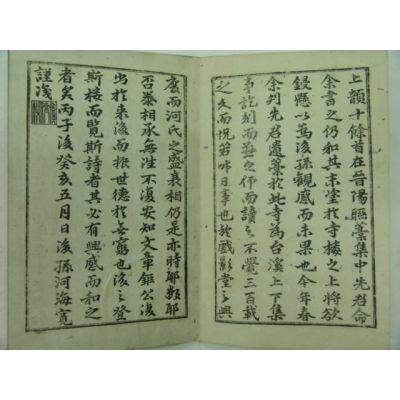 上韻十條首在晋陽聯藁集中先君命
余書之仍和其末塗於寺樓之上將欲
鋟懸以爲後孫觀感而未果也今年春
余刋先君遺藁於此寺爲台溪上下集
事訖刻而之仆而讀之不覺三百載
之久而怳若昨日事也於戲影堂之興
廢而河氏之盛衰相仍是亦時耶數耶
否泰相承無往不復安知文章公復
出於來後而振世德於無窮也後之登
斯樓而覧斯詩者其必有興感而和之
者矣丙子後癸亥五月日後孫河海寬
謹